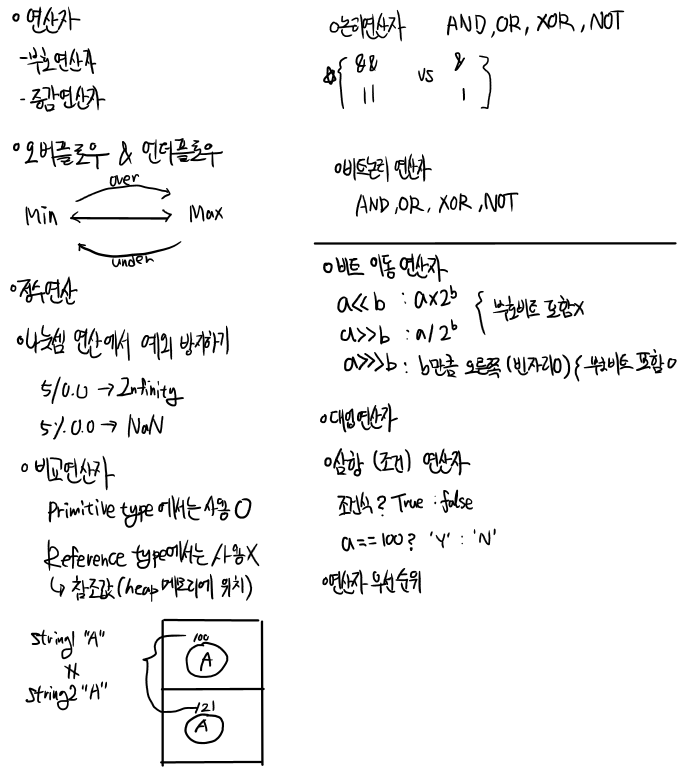 o 연산자
- 부호연산자
- 증감연산자
o 오버플로우 & 언더플로우
over
Min Max
under
o 정수연산
o 나눗셈 연산에서 예외 방지하기
5/0.0 → Infinity
5%0.0 → NaN
o 비교연산자
Primitive type에서는 사용 O
Reference type에서는 사용 X
↳ 참조값 (heap 메모리에 위치)
String1 "A"
String2 "A"
100
A
121
A
o 논리연산자 AND, OR, XOR, NOT
&& vs &
|| |
o 비트논리 연산자
AND, OR, XOR, NOT
o 비트 이동 연산자
a<<b : a x 2^b
a>>b : a / 2^b
{ 부호비트 포함 X
a>>>b : b만큼 오른쪽 (빈자리 0) { 부호비트 포함 O
o 대입연산자
o 삼항 (조건) 연산자
조건식 ? True : false
a == 100 ? 'Y' : 'N'
o 연산자 우선순위